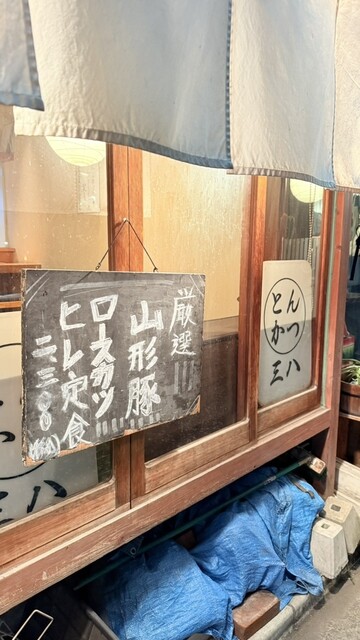 厳選!!!
山形豚
ロースカツ
ヒレ定食
二三〇〇
とん
かつ
三八
八